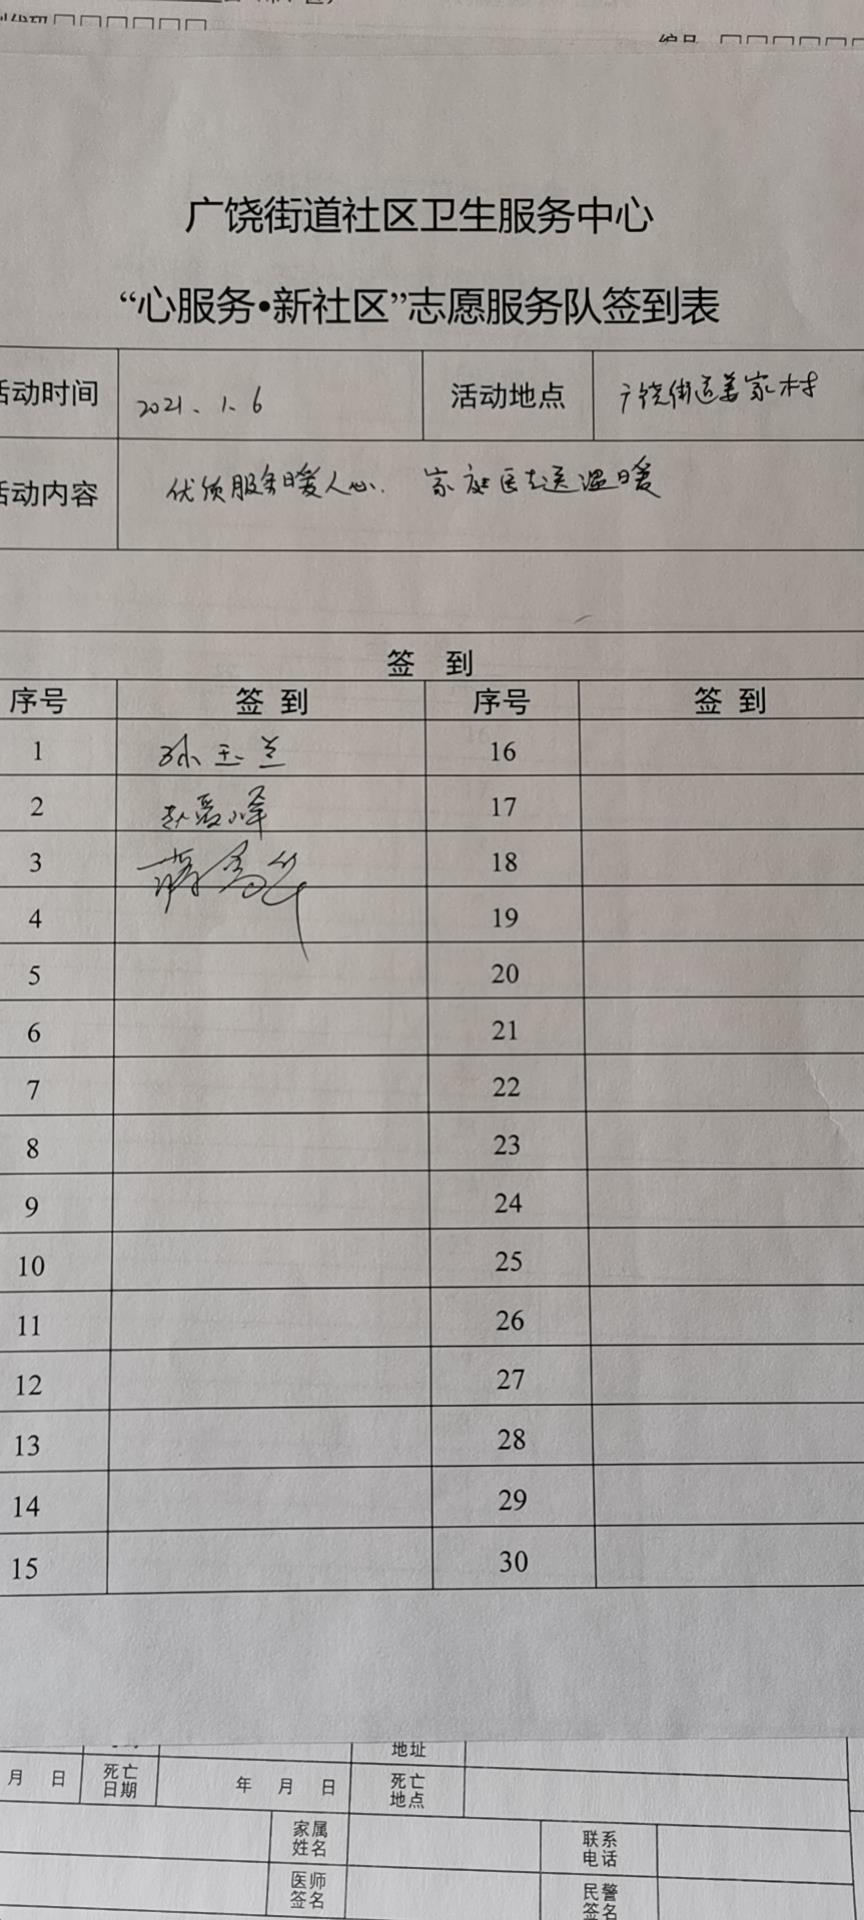 编号
广饶街道社区卫生服务中心
“心服务•新社区”志愿服务队签到表
活动时间 2021.1.6 活动地点 广饶街道姜家村
活动内容 优质服务暖人心. 家庭医生送温暖
签 到
序号 签到 序号 签到
1 孙玉兰 16
2 赵爱峰 17
3 18
4 19
5 20
6 21
7 22
8 23
9 24
10 25
11 26
12 27
13 28
14 29
15 30
地址
月 日 死亡日期 年 月 日 死亡地点
家属姓名 联系电话
医师签名 民警签名